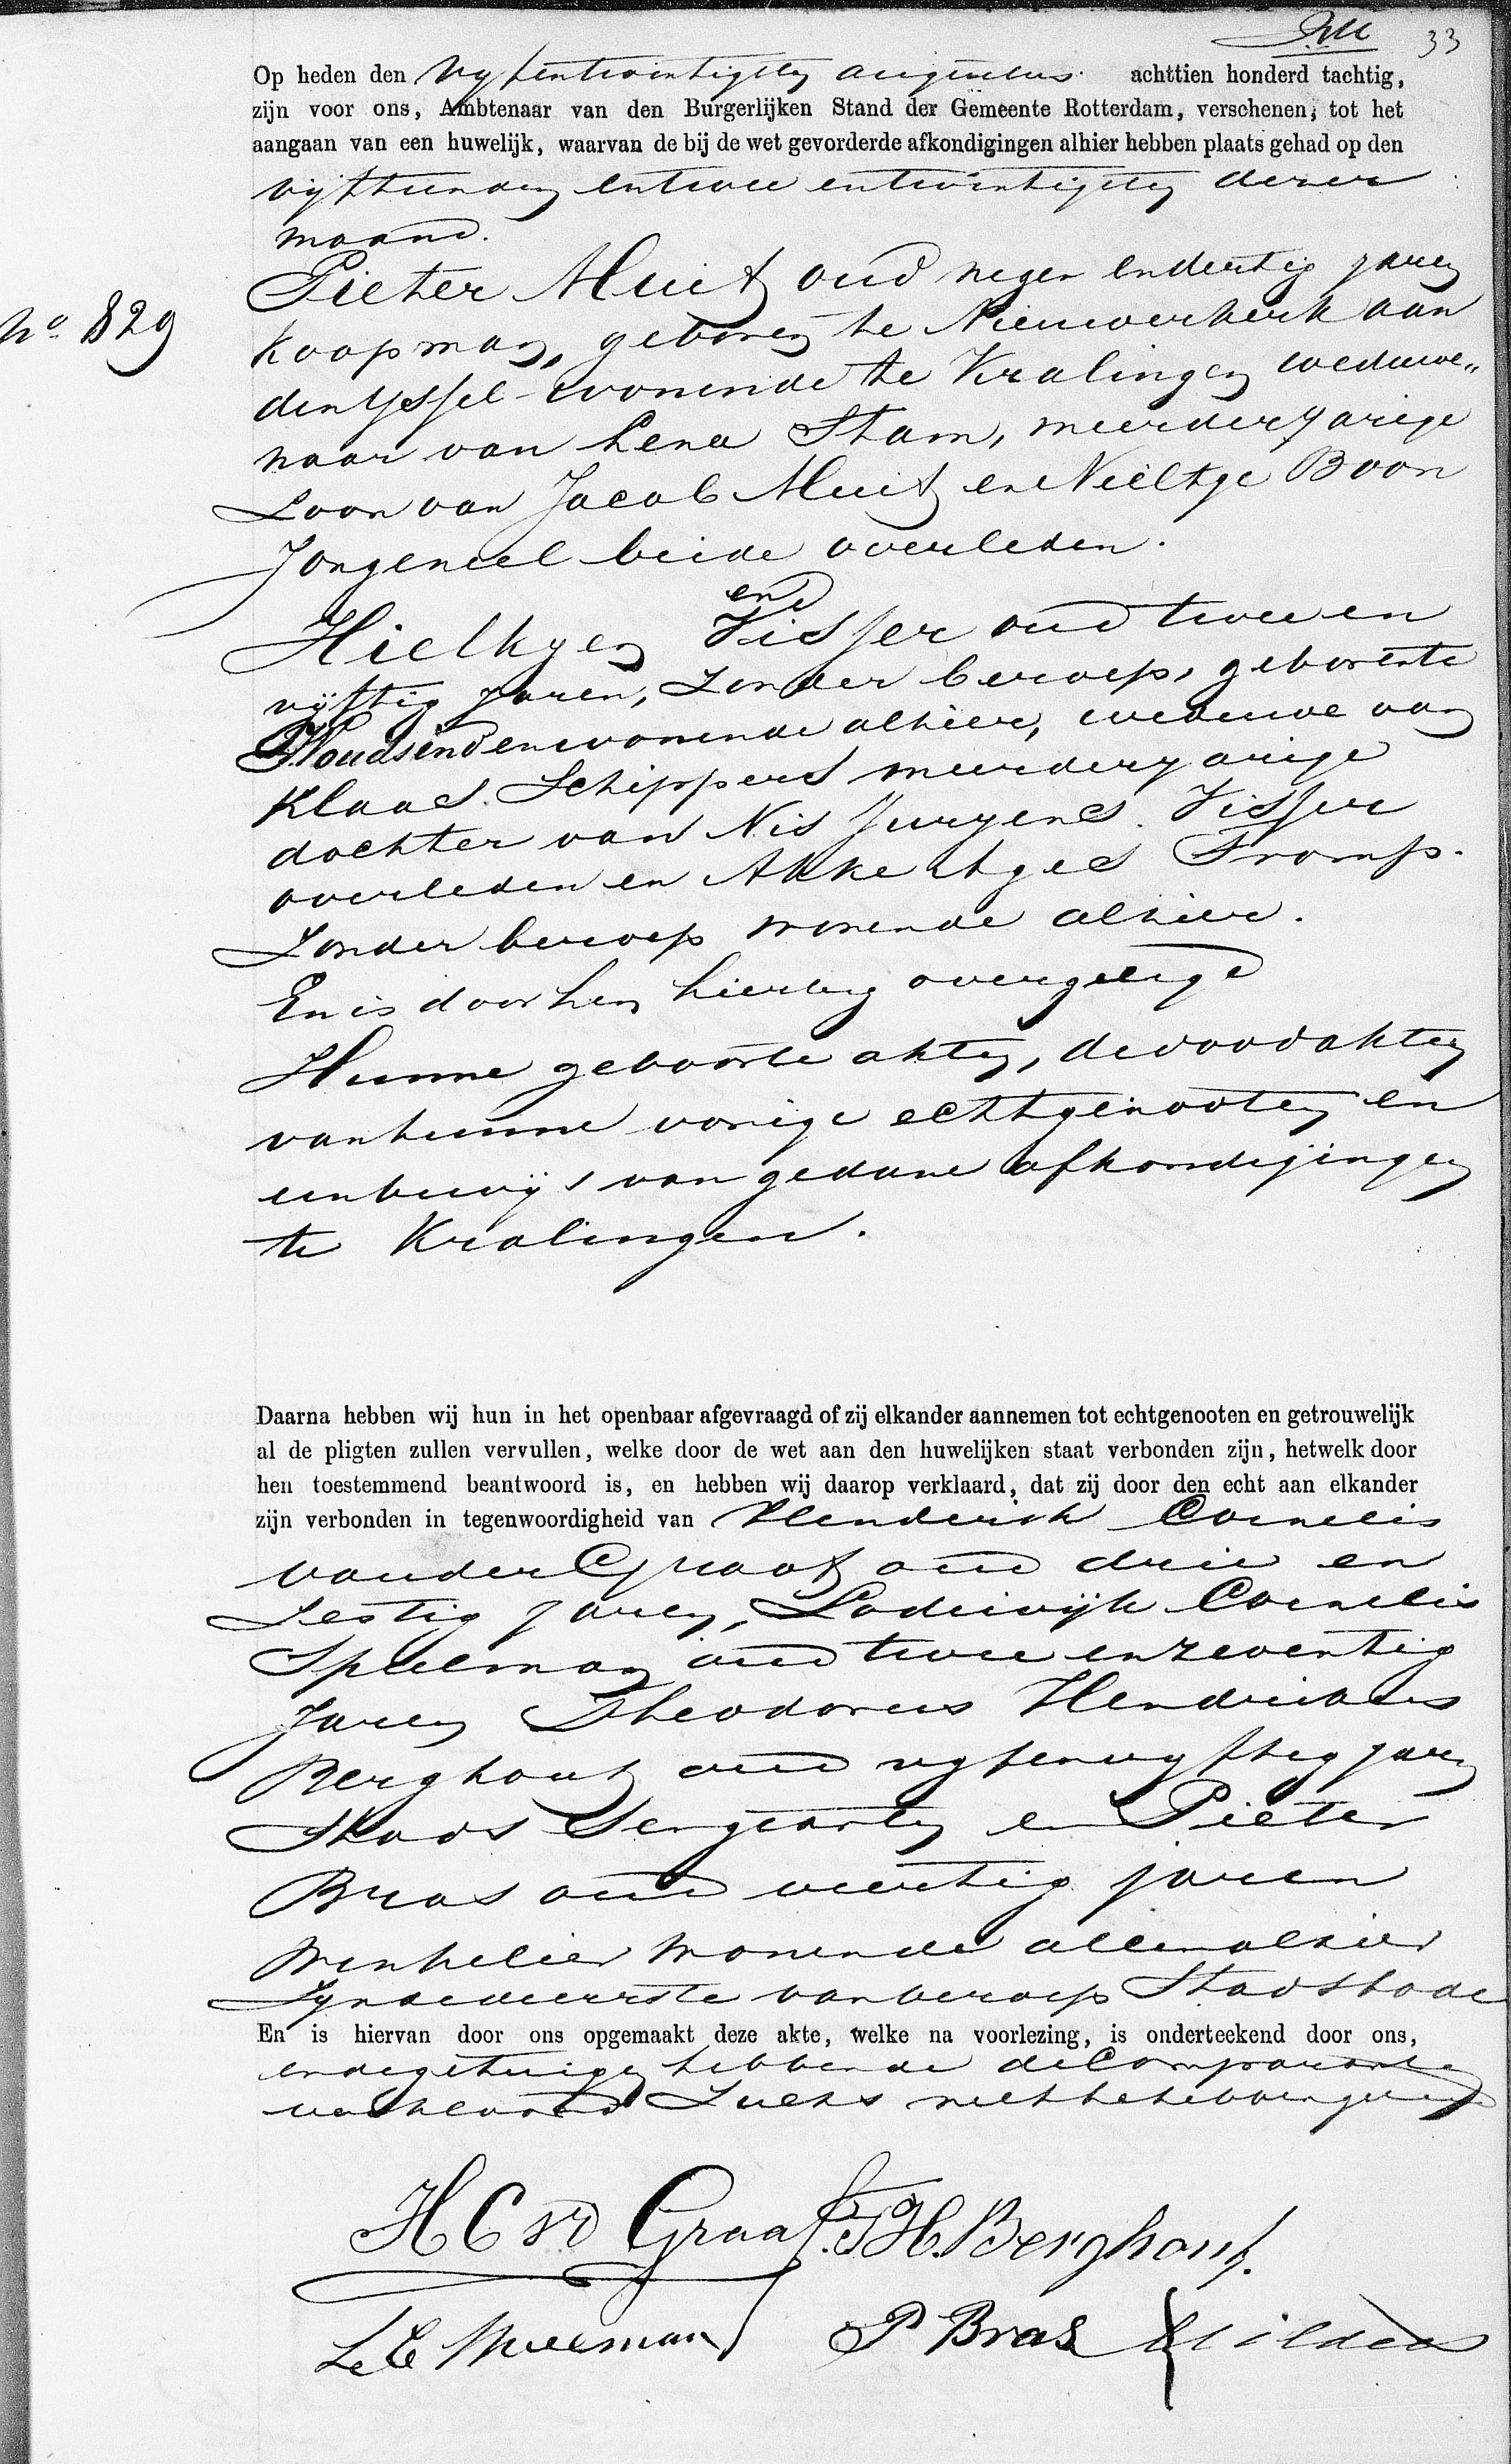 33
Op heden den vyfentwintigsten augustus achttien honderd tachtig,
zijn voor ons, Ambtenaar van den Burgerlijken Stand der Gemeente Rotterdam, verschenen, tot het
aangaan van een huwelijk, waarvan de bij de wet gevorderde afkondigingen alhier hebben plaats gehad op den
vijftienden en twee entwintigsten dezer
maand.
No 829
Pieter Muit oud negen endertig jaren
koopman, geboren te Nieuwerkerk aan
den yssel wonende te Kralingen weduwe„
naar van Lena Stam, meerderjarige
Zoon van Jacob Muit en Neeltje Boon
Jongeneel beide overleden.
en
Hielkjen Visser oud twee en
vijftig jaren, zonder beroep, geboren te
Woudsend en wonende alhier, weduwe van
Klaas Schippers meerderjarige
dochter van Nis Jurjens Visser
overleden en Akke Atjes Tromp.
Zonder beroep wonende alhier.
En is door hen hierbij overgelegd
Hunne geboorte akten, de doodakten
van hunne vorige echtgenooten en
een bewijs van gedane afkondigingen
te Kralingen.
Daarna hebben wij hun in het openbaar afgevraagd of zij elkander aannemen tot echtgenooten en getrouwelijk
al de pligten zullen vervullen, welke door de wet aan den huwelijken staat verbonden zijn, hetwelk door
hen toestemmend beantwoord is, en hebben wij daarop verklaard, dat zij door den echt aan elkander
zijn verbonden in tegenwoordigheid van Henderik Cornelis
vander Graaf oud drie en
Sestig jaren, Lodewijk Cornelis
Speelman oud twee en zeventig
Jaren Theodorus Hendrikus
Berghout oud vyfenvyftig jaren
Stads Sergeanten en Pieter
Bras oud veertig jaren
Winkelier wonende allen alhier
Zynde de eerste van beroep Stadsbode
En is hiervan door ons opgemaakt deze akte, welke na voorlezing, is onderteekend door ons,
en de getuigen hebbende de Comparanten
verklaard Zulks niet te hebben geleerd
H C vd Graaf. T H. Berghout.
L C Speelman P Bras